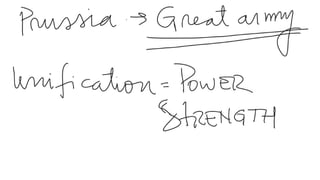 Prussia → Great army
Unification = POWER
& STRENGTH